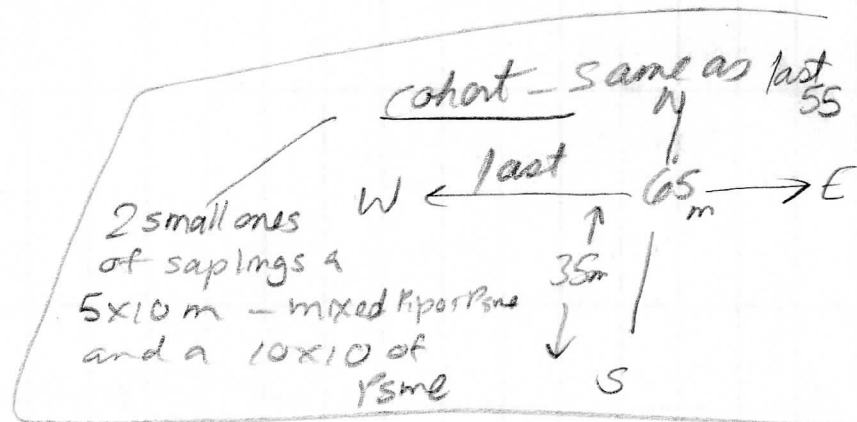 cohort - same as last
55
N
last
W 65m E
2 small ones
of saplings a
35m
5x10 m - mixed Pipo Psme
and a 10x10 of
Psme
S